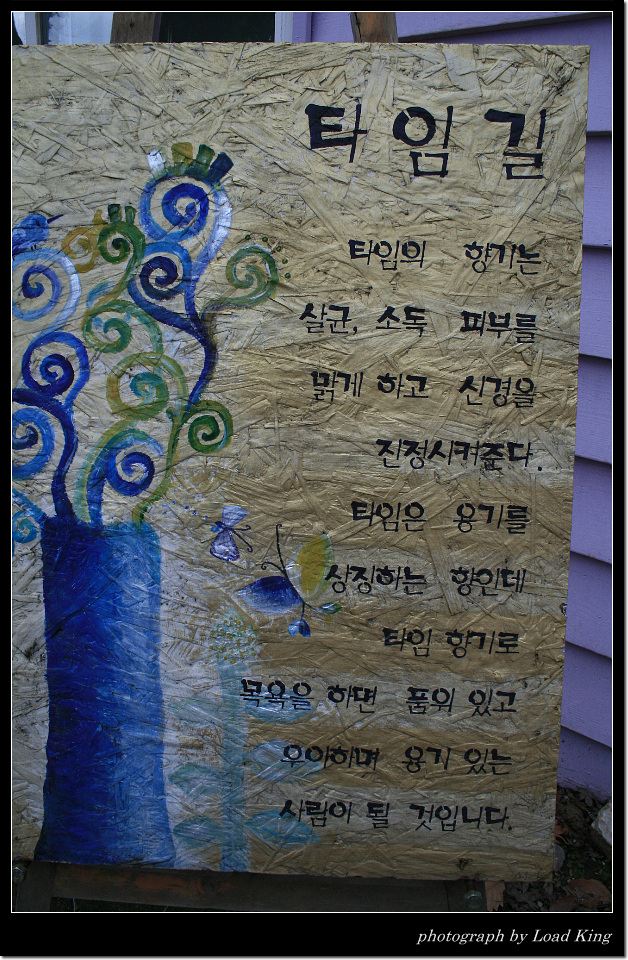 타임길
타임의 향기는
살균, 소독 피부를
맑게 하고 신경을
진정시켜준다.
타임은 용기를
상징하는 향인데
타임 향기로
목욕을 하면 품위 있고
우아하며 용기 있는
사람이 될 것입니다.
photograph by Load King